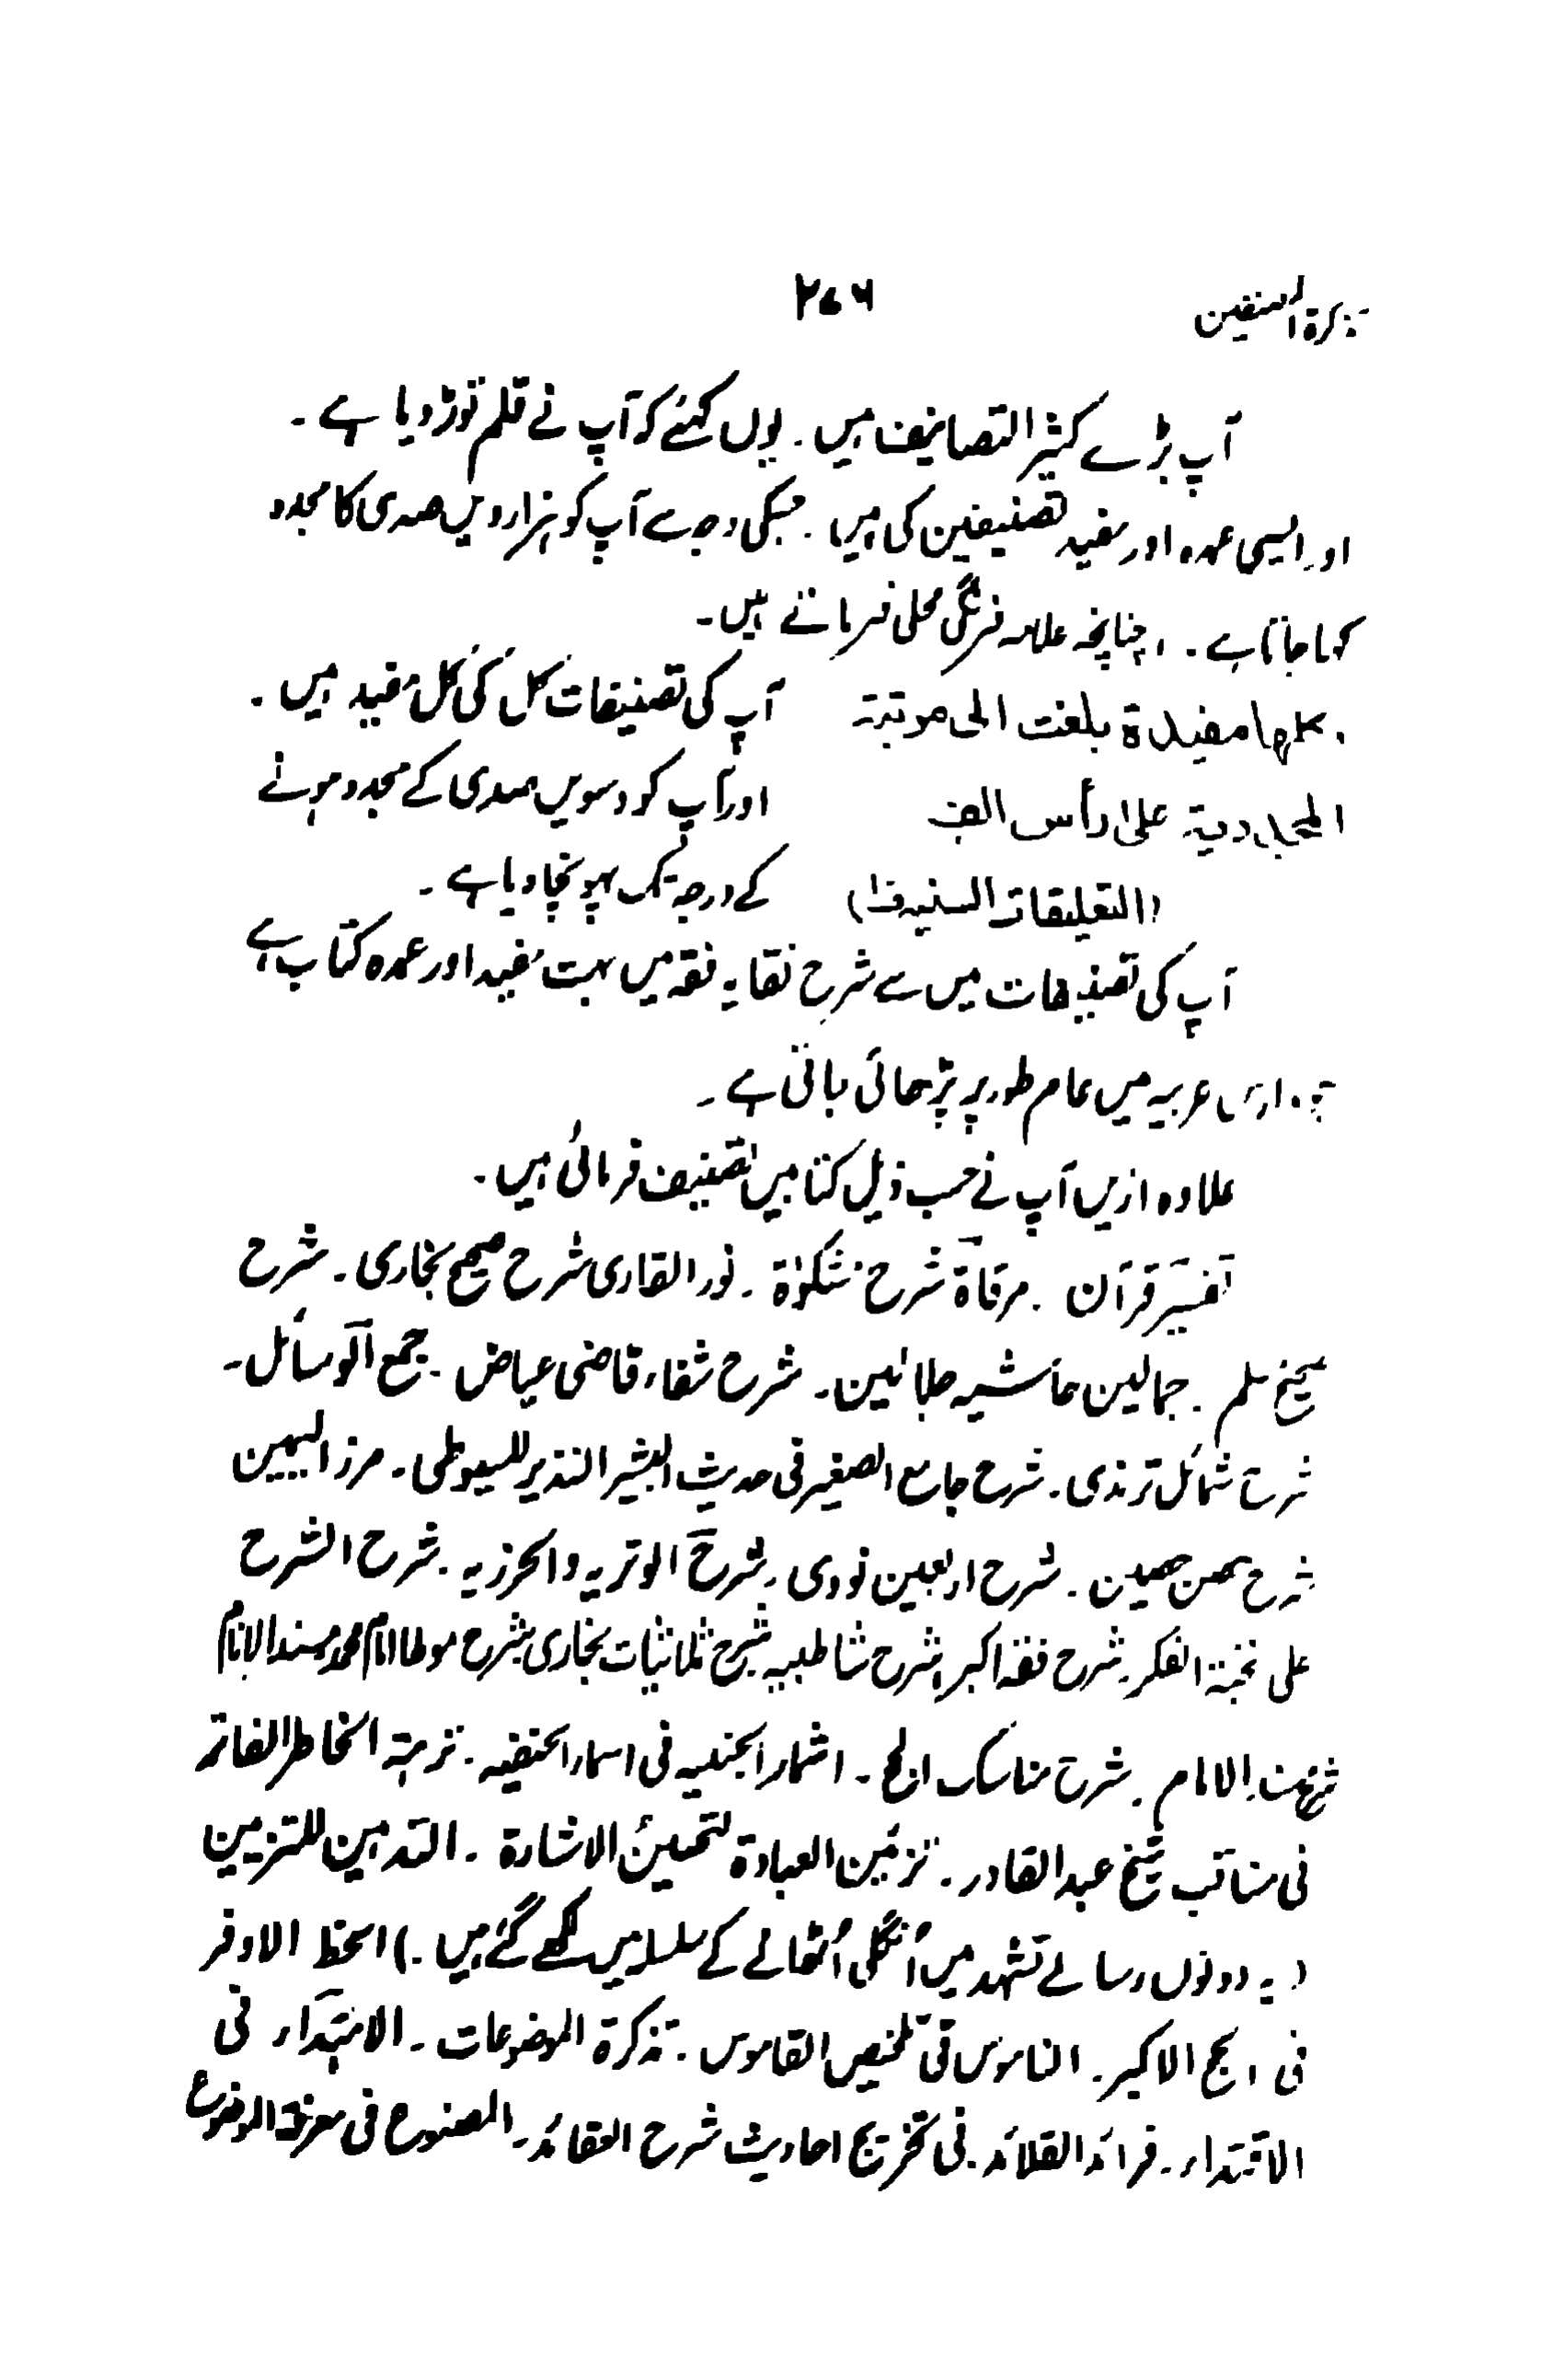 تذکرۃ المصنفین ۲۷۶
آپ بڑے کثیر التصانیف ہیں۔ یوں کہئے کہ آپ نے قلم توڑ دیا ہے۔
اور ایسی عمدہ اور مفید تصنیفیں کی ہیں۔ جسکی وجہ سے آپ کو ہزارویں صدی کا مجدد
کہا جاتا ہے۔ چنانچہ علامہ فرنگی محلی فرماتے ہیں۔
کلھا مفیدۃ بلغت الی مرتبتہ آپ کی تصنیفات کل کی کل مفید ہیں۔
المجددیۃ علی رأس الف اور آپ کو دسویں صدی کے مجدد ہونے
(التعلیقات السنیہ) کے درجہ تک پہونچا دیا ہے۔
آپ کی تصنیفات میں سے شرح نقایہ فقہ میں بہت مفید اور عمدہ کتاب ہے
عربیہ میں عام طور پر پڑھائی جاتی ہے۔
علاوہ ازیں آپ نے حسب ذیل کتابیں تصنیف فرمائی ہیں۔
تفسیر قرآن۔ مرقاۃ شرح مشکوٰۃ۔ نور القاری شرح صحیح بخاری۔ شرح
صحیح مسلم۔ جمالین حاشیہ جلالین۔ شرح شفاء قاضی عیاض۔ جمع الوسائل۔
شرح شمائل ترمذی۔ شرح جامع الصغیر فی حدیث البشیر النذیر للسیوطی۔ حرز الثمین
شرح حصن حصین۔ شرح اربعین نووی۔ شرح الوتریہ والجزریہ۔ شرح الشرح
علی نخبۃ الفکر۔ شرح فقہ اکبر، شرح شاطبیہ شرح ثلاثیات بخاری شرح موطا امام محمد مسند الانام
شرح مسند الامام۔ شرح مناسک الحج۔ اثمار الجنیہ فی اسماء الحنفیہ۔ نزہتہ الخاطر الفاتر
فی مناقب شیخ عبد القادر۔ تزئین العبادۃ لتحسین الاشارۃ۔ التدہین للتزیین
(یہ دونوں رسالے تشہد میں اُنگلی اُٹھانے کے سلسلہ میں لکھے گئے ہیں۔) الحظ الاوفر
فی الحج الاکبر۔ الناموس فی تلخیص القاموس۔ تذکرۃ الموضوعات۔ الاہتداء فی
الاقتداء۔ فرائد القلائد۔ فی تخریج احادیث شرح العقائد۔ المصنوع فی معرفۃ الموضوع